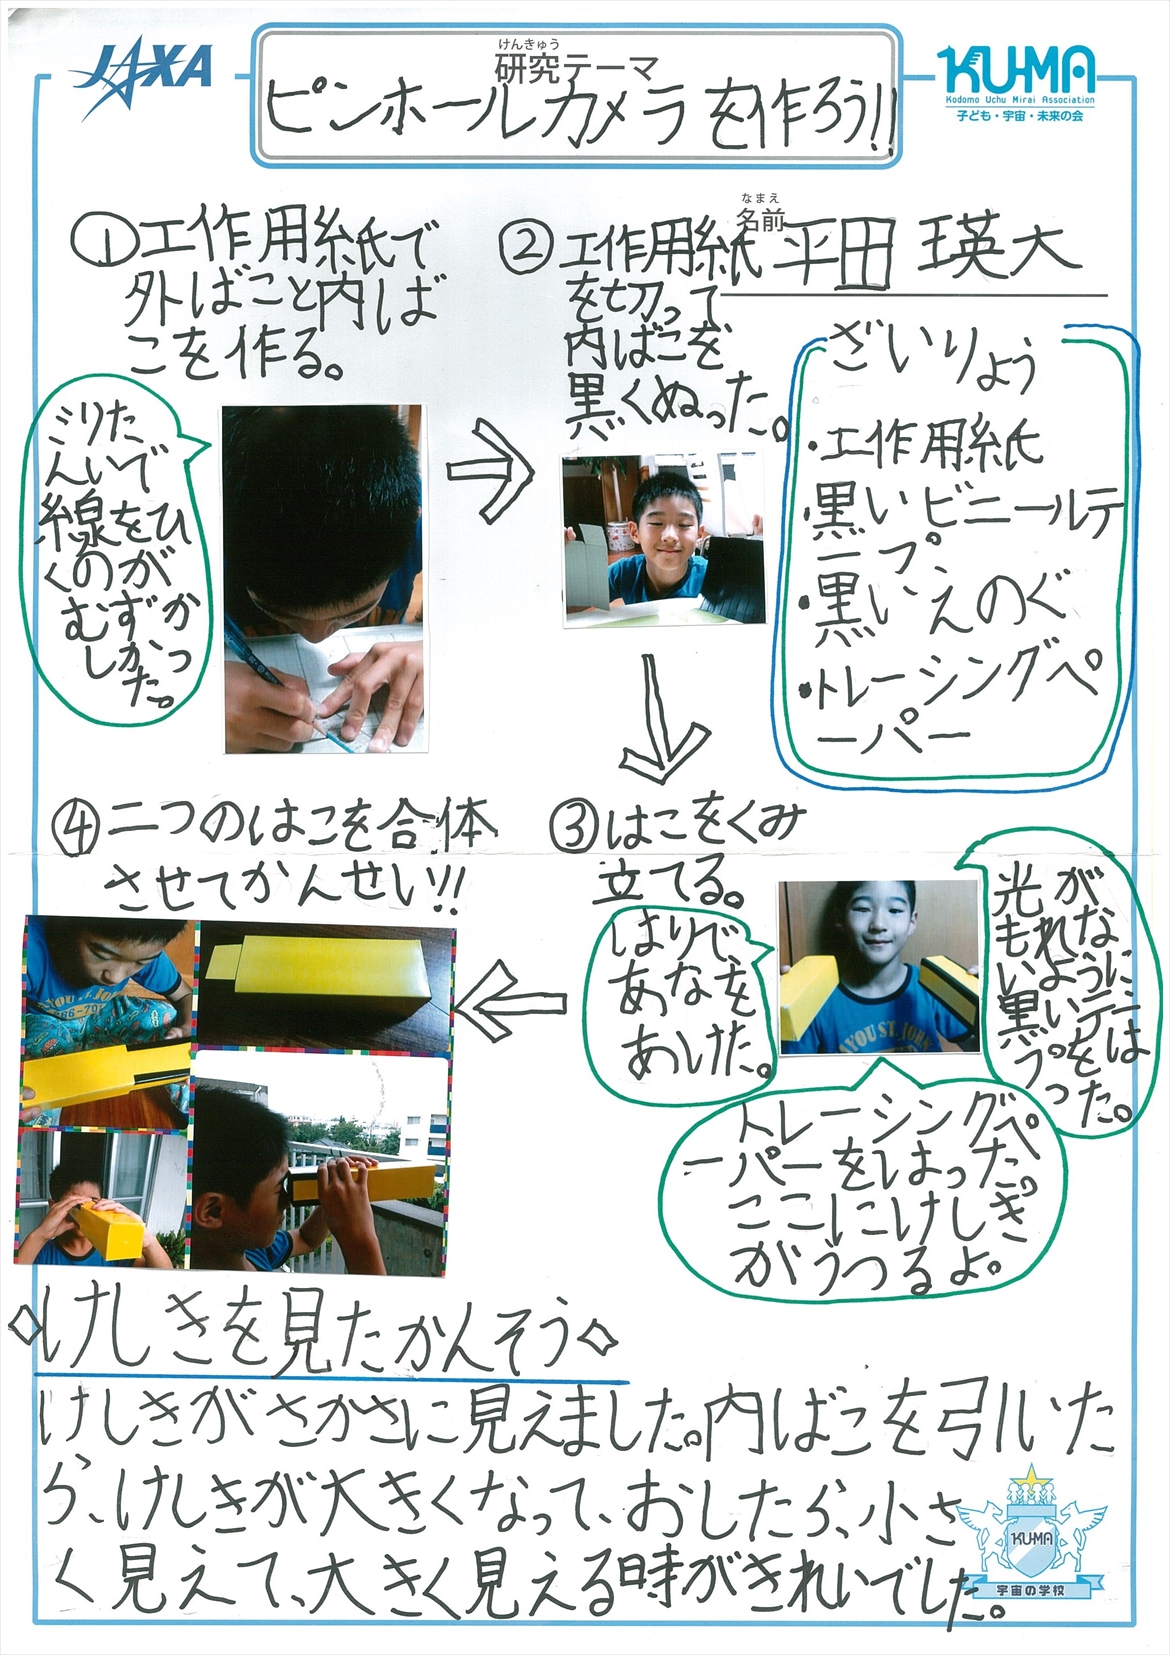 JAXA
けんきゅう
研究テーマ
ピンホールカメラを作ろう!!
KU-MA
Kodomo Uchu Mirai Association
子ども・宇宙・未来の会
なまえ
名前
平田 瑛大
①工作用紙で
外ばこと内ば
こを作る。
ミリた
んいで
線をひ
くのが
むずか
しかっ
た。
②工作用紙
を切って
内ばこを
黒くぬった。
ざいりょう
・工作用紙
・黒いビニールテ
ープ
・黒いえのぐ
・トレーシングペ
ーパー
③はこをくみ
立てる。
はりで
あなを
あけた。
光が
もれな
いように
黒いテー
プをは
った。
トレーシングペ
ーパーをはったよ。
ここにけしき
がうつるよ。
④二つのはこを合体
させてかんせい!!
◇けしきを見たかんそう◇
けしきがさかさに見えました。内ばこを引いた
ら、けしきが大きくなって、おしたら、小さ
く見えて、大きく見える時がきれいでした。
KU-MA
宇宙の学校